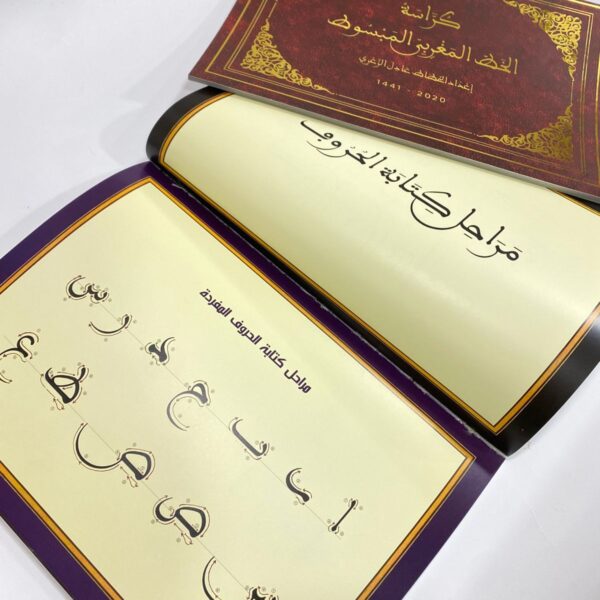 كراسة
الخط المغربي المبسوط
إعداد الخطاط عادل الزغري
1441 - 2020
مراحل كتابة الحروف
مراحل كتابة الحروف المفردة